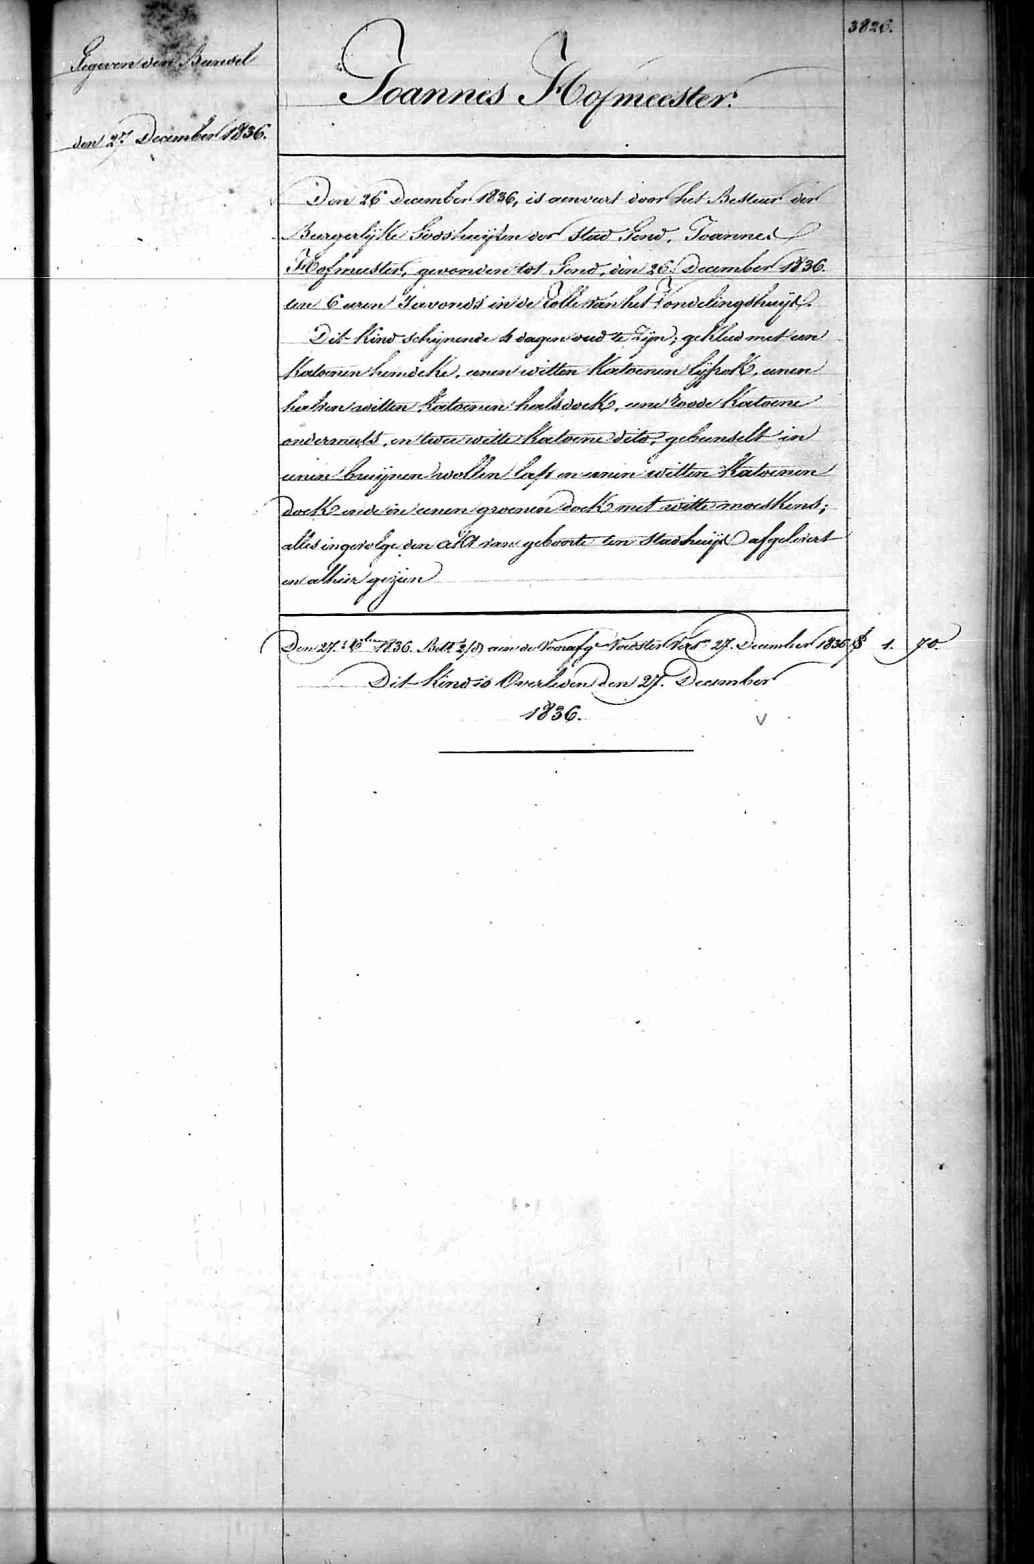 3826.
Gegeven den Bundel
den 27 December 1836.
Joannes Hofmeester.
Den 26 December 1836, is aenveert door het Bestuer der
Burgerlijke Godshuijsen der Stad Gend, Joannes
Hofmeester, gevonden tot Gend, den 26 December 1836.
ten 6 uren s'avonds in de Rolle van het Vondelingshuijs.
Dit Kind schijnende 4 dagen oud te Zijn; gekleed met een
katoenen hemdeke, eenen witten Katoenen lijfrok, eenen
halven witten katoenen halsdoek, eene roode Katoene
ondermuts, en twee witte Katoene dito, gebunselt in
eenen bruijnen wollen lap en eenen witten Katoenen
doek ende in eenen groenen doek met witte moeskens;
alles ingevolge den akt van geboorte ten Stadshuijse afgelevert
en alhier gezien
Den 27. Xber 1836. Bett aen de Voorafge Voedster 27. December 1836 1. 70.
Dit Kind is Overleden den 27. December
1836.